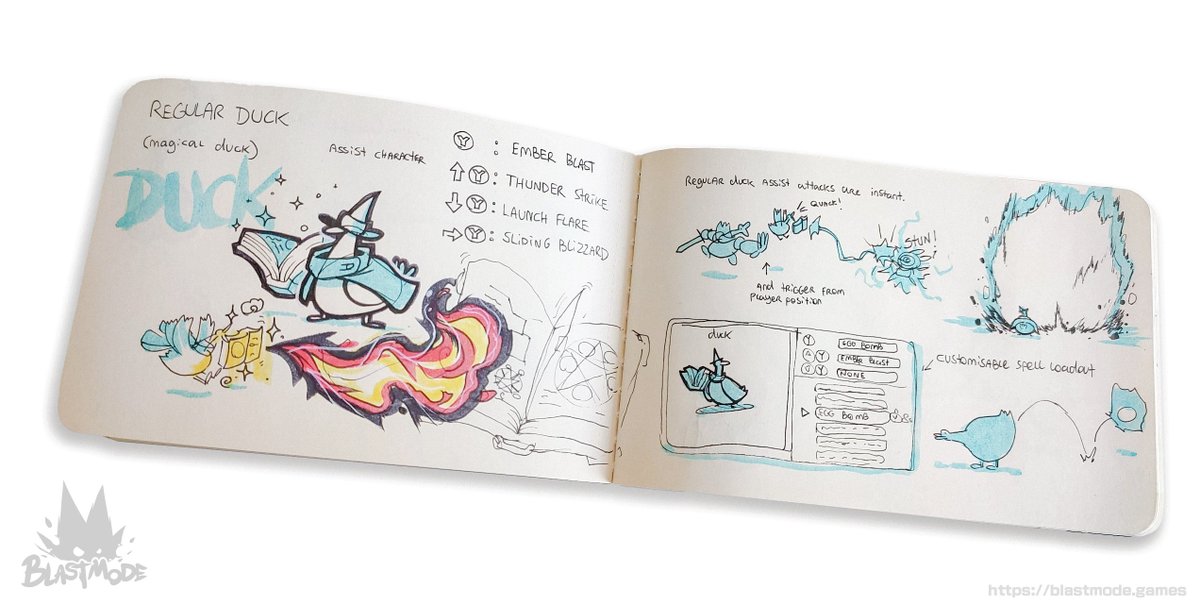 REGULAR DUCK
(magical duck)
ASSIST CHARACTER
DUCK
Y : EMBER BLAST
↑ Y : THUNDER STRIKE
↓ Y : LAUNCH FLARE
→ Y : SLIDING BLIZZARD
REGULAR DUCK ASSIST attacks are instant.
QUACK!
STUN!
AND TRIGGER FROM
PLAYER POSITION
duck
Y EGG BOMB
Y EMBER BLAST
Y NONE
EGG BOMB
CUSTOMISABLE SPELL LOADOUT
BLASTMODE
https://blastmode.games